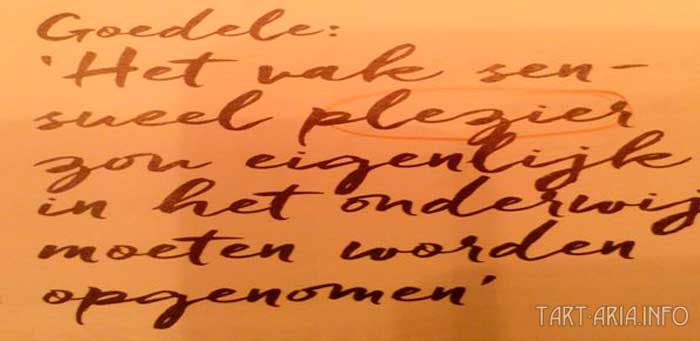 Goedele:
'Het vak sen-
sueel plezier
zou eigenlijk
in het onderwij
moeten worden
opgenomen'
TART-ARIA.INFO